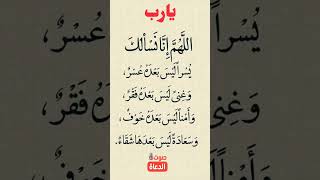 يارب
اللَّهُمَّ إِنَّا نَسْأَلُكَ
يُسْراً لَيْسَ بَعْدَهُ عُسْرٌ،
وَغِنىً لَيْسَ بَعْدَهُ فَقْرٌ،
وَأَمْناً لَيْسَ بَعْدَهُ خَوْفٌ،
وَسَعَادَةً لَيْسَ بَعْدَهَا شَقَاءٌ.
صوت
الدعاة